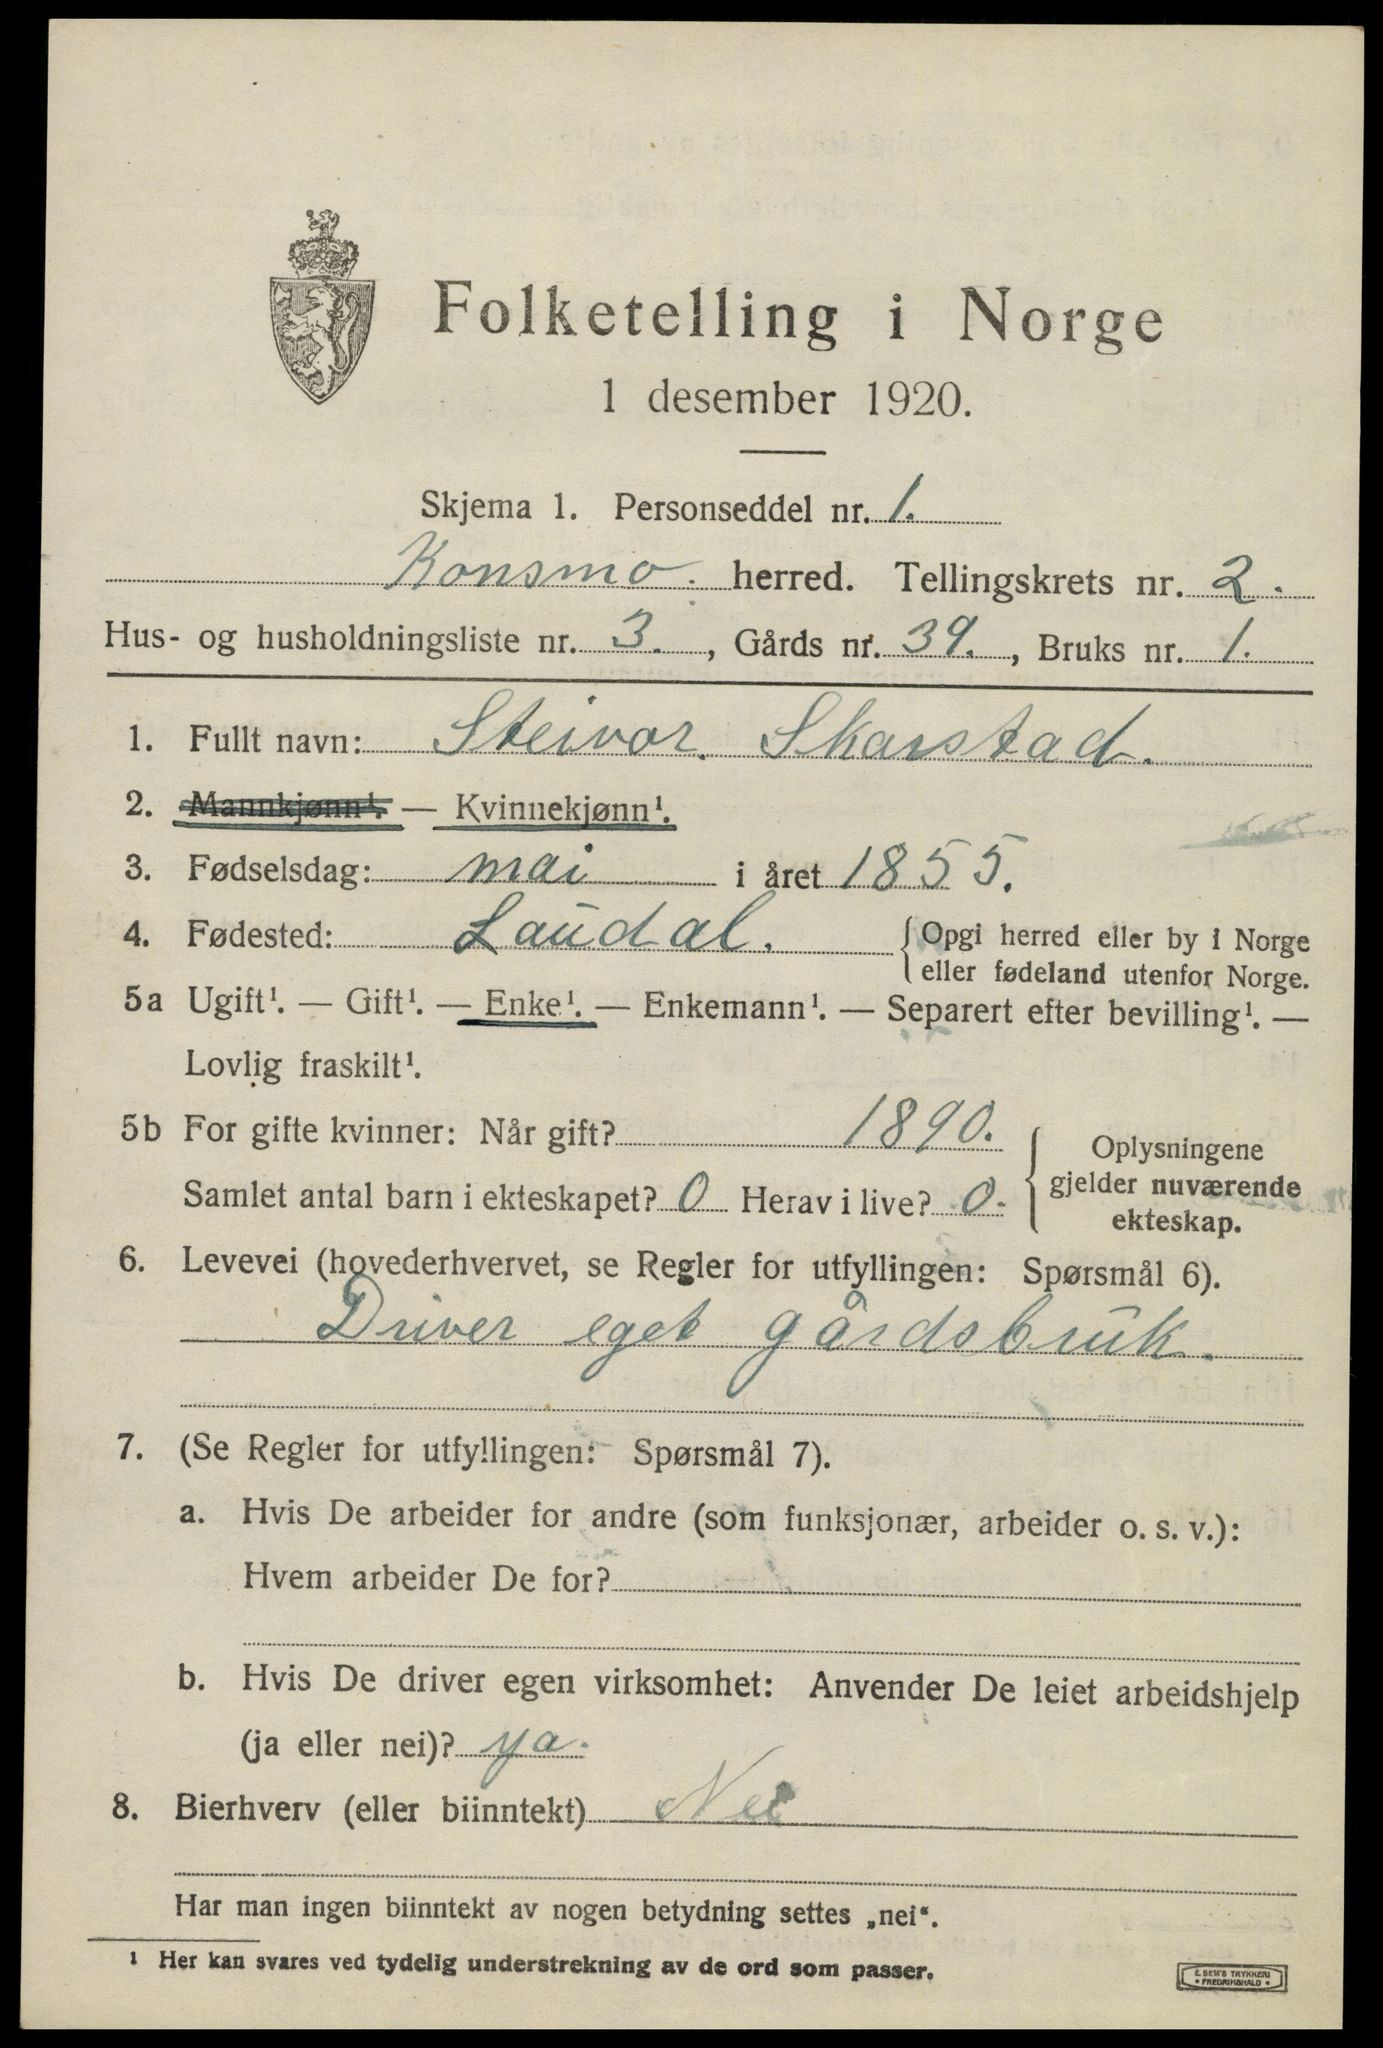 Folketelling i Norge
1 desember 1920.
Skjema 1. Personseddel nr. 1.
Konsmo. herred. Tellingskrets nr. 2.
Hus- og husholdningsliste nr. 3., Gårds nr. 39., Bruks nr. 1.
1. Fullt navn: Steivor. Skarstad.
2. Mannkjønn¹. — Kvinnekjønn¹.
3. Fødselsdag: mai i året 1855.
4. Fødested: Laudal. { Opgi herred eller by i Norge
eller fødeland utenfor Norge.
5a Ugift¹. — Gift¹. — Enke¹. — Enkemann¹. — Separert efter bevilling¹. —
Lovlig fraskilt¹.
5b For gifte kvinner: Når gift? 1890.
Samlet antal barn i ekteskapet? 0 Herav i live? 0.
{ Oplysningene
gjelder nuværende
ekteskap.
6. Levevei (hovederhvervet, se Regler for utfyllingen: Spørsmål 6).
Driver eget gårdsbruk.
7. (Se Regler for utfyllingen: Spørsmål 7).
a. Hvis De arbeider for andre (som funksjonær, arbeider o. s. v.):
Hvem arbeider De for?
b. Hvis De driver egen virksomhet: Anvender De leiet arbeidshjelp
(ja eller nei)? ya.
8. Bierhverv (eller biinntekt) Nei
Har man ingen biinntekt av nogen betydning settes „nei“.
¹ Her kan svares ved tydelig understrekning av de ord som passer.
E. SEM'S TRYKKERI
• FREDRIKSHALD •